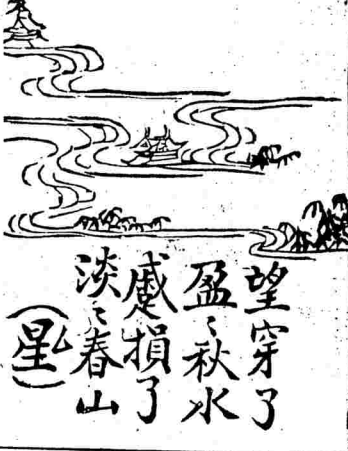 望穿了
盈〻秋水
蹙損了
淡〻春山
（星）